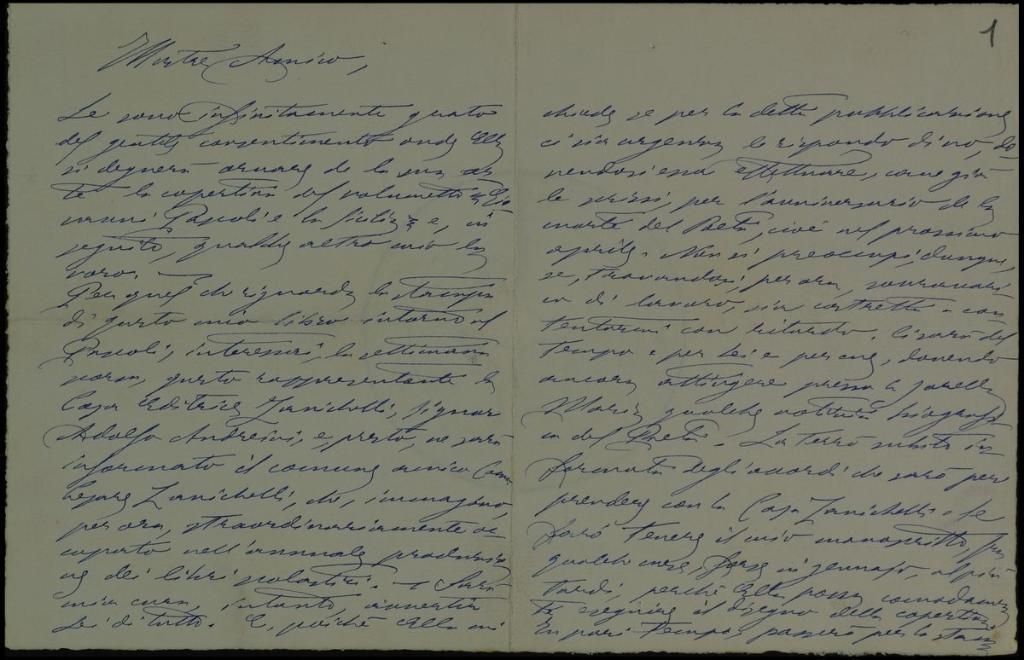 Illustre Amico,
Le sono infinitamente grato
del gentile consentimento onde Ella
si degnerà ornare de la sua ar
te la copertina del volumetto Gio
vanni Pascoli e la Sicilia e, in
seguito, qualche altro mio la
voro.
Per quel che riguarda la stampa
di questo mio libro intorno al
Pascoli, interessai, la settimana
scorsa, questo rappresentante la
Casa Editrice Zanichelli, signor
Adolfo Andreini, e, presto, ne sarà
informato il comune amico Comm.
Cesare Zanichelli, che, immagino
per ora, straordinariamente oc
cupato nell'annuale produzio
ne dei libri scolastici. Sarà
mia cura, intanto, avvertir
La di tutto. E, poichè Ella mi
1
chiede se per la detta pubblicazione
ci sia urgenza le rispondo di no, do
vendosi essa effettuare, come già
le scrissi, per l'anniversario de la
morte del Poeta, cioè nel prossimo
aprile. Non si preoccupi, dunque,
se, trovandosi, per ora, sovraccari
ca di lavoro, sia costretta a con
tentarmi con ritardo. Ci sarà del
tempo e per Lei e per me, dovendo
ancora attingere presso la sorella
Maria qualche notizia biografi
ca del Poeta. La terrò subito in
formata degli accordi che sarò per
prendere con la Casa Zanichelli e Le
farò tenere il mio manoscritto, fra
qualche mese, forse in gennajo, al più
tardi, perchè Ella possa comodamen
te eseguire il disegno della copertina.
In pari tempo passerò per la stam